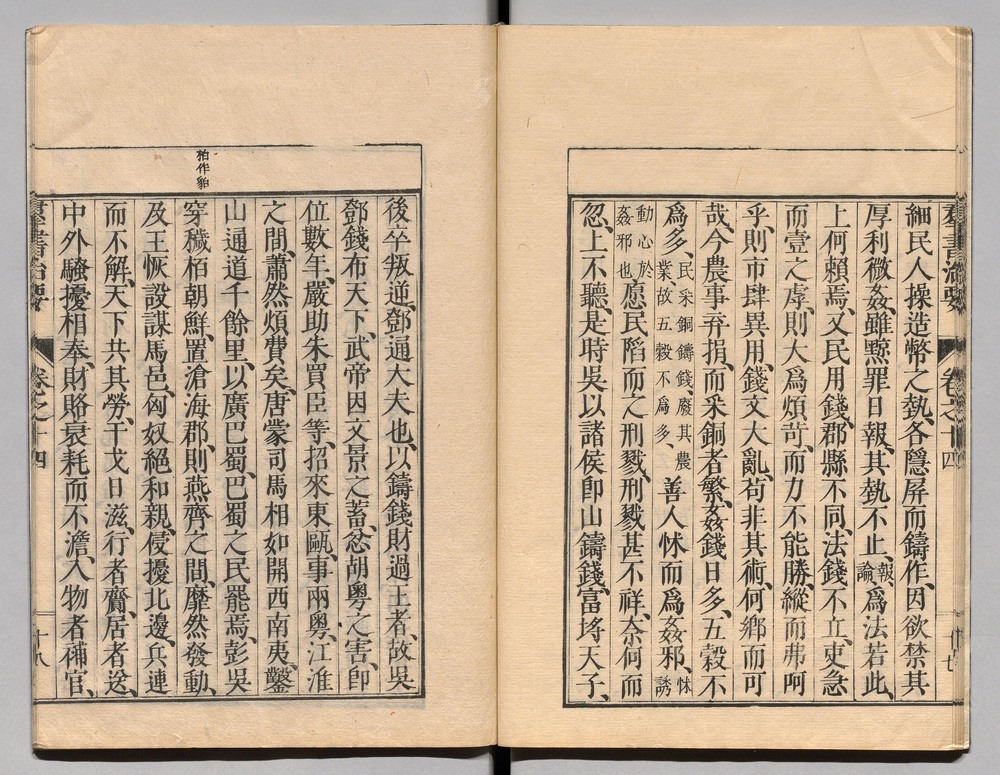 羣書治要 卷之十四
細民人操造幣之埶、各隱屏而鑄作、因欲禁其
厚利微姦、雖黥罪日報、其埶不止、報論、爲法若此、
上何賴焉、又民用錢、郡縣不同、法錢不立、吏急
而壹之虖、則大爲煩苛、而力不能勝、縱而弗呵
乎、則市肆異用、錢文大亂、苟非其術、何鄉而可
哉、今農事弃捐、而采銅者繁、姦錢日多、五穀不
爲多、民采銅鑄錢、廢其農業、故五穀不爲多、善人怵而爲姦邪、怵誘
動心於姦邪也愿民陷而之刑戮、刑戮甚不祥、奈何而
忽、上不聽、是時吳以諸侯卽山鑄錢、富埒天子、
後卒叛逆、鄧通大夫也、以鑄錢財過王者、故吳
鄧錢布天下、武帝因文景之蓄、忿胡粵之害、卽
位數年、嚴助朱買臣等、招來東甌、事兩粵、江淮
之間、蕭然煩費矣、唐蒙司馬相如開西南夷、鑿
山通道千餘里、以廣巴蜀、巴蜀之民罷焉、彭吳
栢作貊
穿穢栢朝鮮、置滄海郡、則燕齊之間、靡然發動、
及王恢設謀馬邑、匈奴絕和親、侵擾北邊、兵連
而不解、天下共其勞、干戈日滋、行者齎、居者送、
中外騷擾相奉、財賂衰耗而不澹、入物者補官、
羣書治要 卷之十四 十八